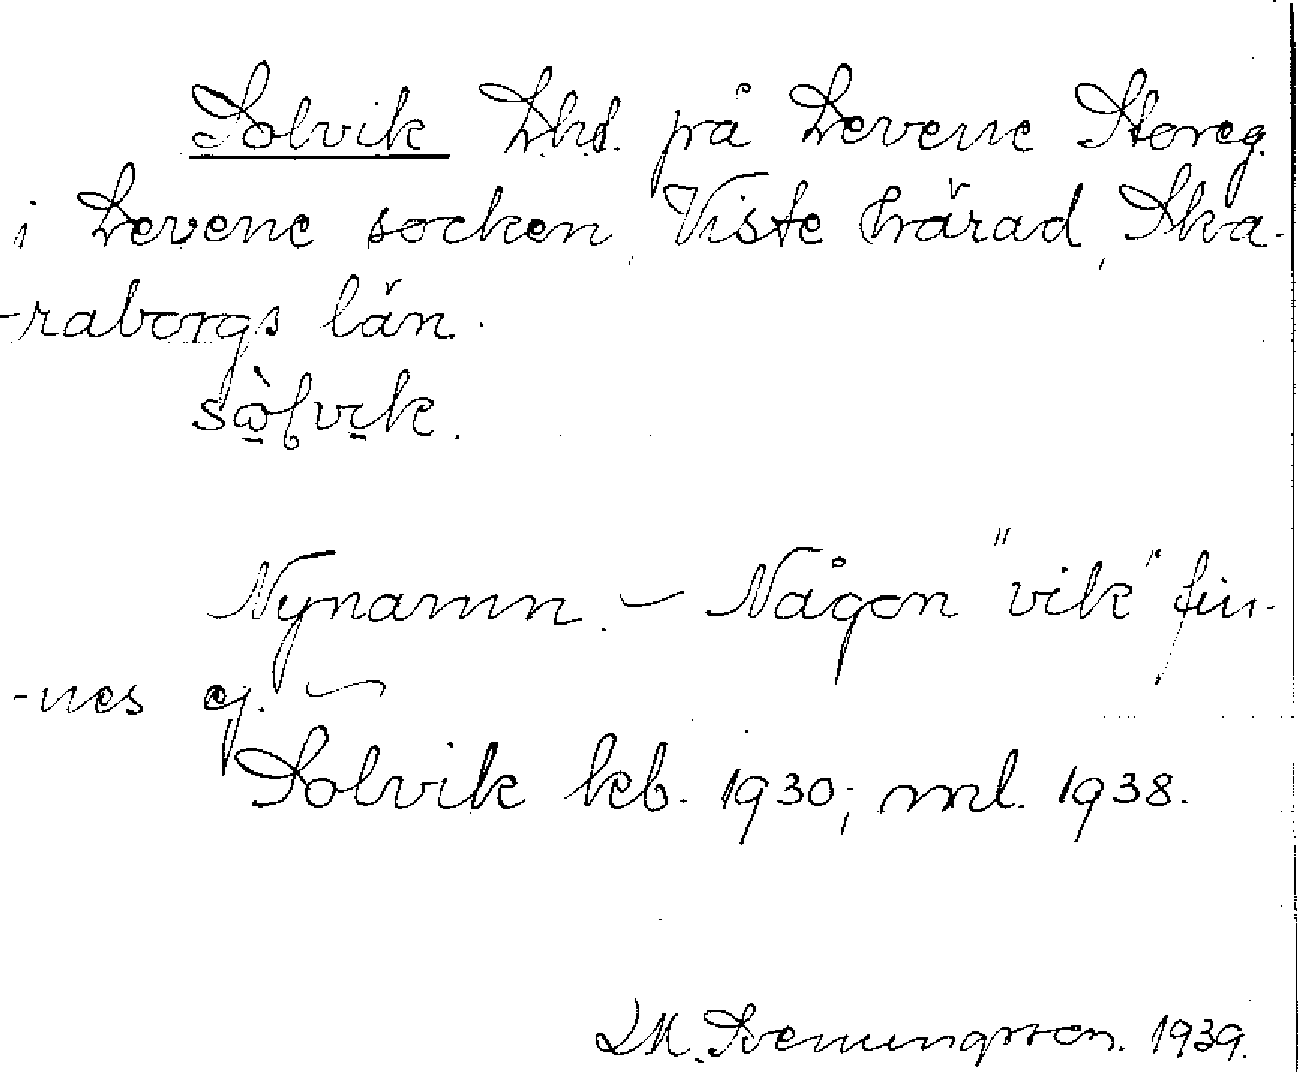 Solvik Lhd. på Levene Storeg.
i Levene socken, Viste härad, Ska-
-raborgs län.
sòlvik.
Nynamn. – Någon "vik" fin-
-nes ej. –
Solvik kb. 1930; ml. 1938.
1939.